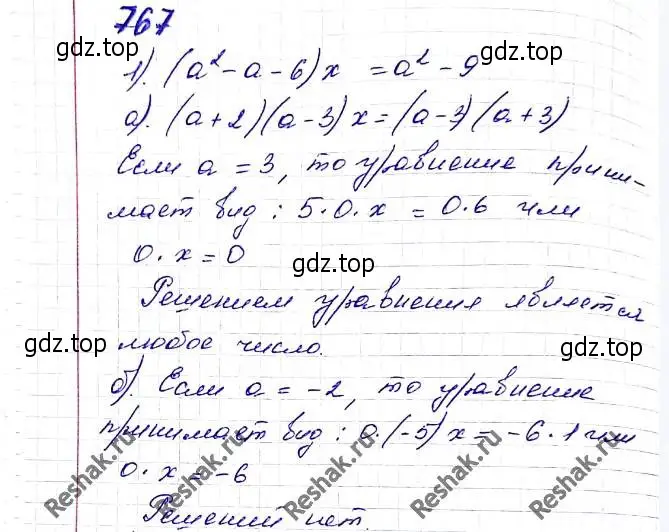 767
gdz.top gdz.top
1). (a² - a - 6)x = a² - 9
gdz.top
а). (a+2)(a-3)x = (a-3)(a+3)
Если a = 3, то уравнение прини-
мает вид: 5·0·x = 0·6 или
0·x = 0
gdz.top
Решением уравнения является
gdz.top любое число. gdz.top
б). Если a = -2, то уравнение
принимает вид: 0·(-5)x = -6·1 или
0·x = -6
Решений нет
Reshak.ru Reshak.ru Reshak.ru Reshak.ru